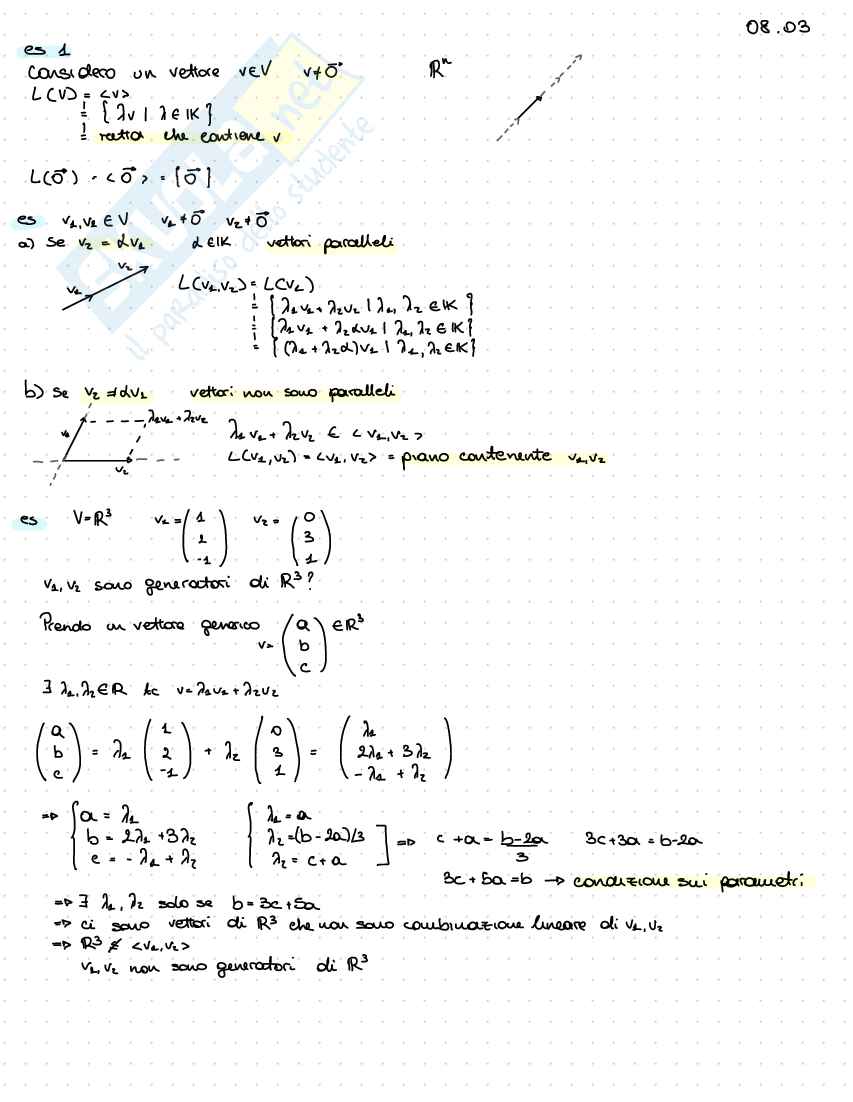 08.03
es 1
Considero un vettore v∈V v≠0⃗ ℝⁿ
L(V) = <v>
= {λv | λ∈𝕂}
= retta che contiene v
L(0⃗) = <0⃗> = {0⃗}
es v₁,v₂ ∈ V v₁≠0⃗ v₂≠0⃗
a) Se v₂ = αv₁ α∈𝕂 vettori paralleli
v₁ v₂
L(v₁,v₂) = L(v₁)
= {λ₁v₁ + λ₂v₂ | λ₁, λ₂ ∈𝕂}
= {λ₁v₁ + λ₂αv₁ | λ₁, λ₂ ∈𝕂}
= {(λ₁ + λ₂α)v₁ | λ₁, λ₂ ∈𝕂}
b) Se v₂ ≠ αv₁ vettori non sono paralleli
λ₁v₁ + λ₂v₂
v₁
v₂
λ₁v₁ + λ₂v₂ ∈ <v₁, v₂>
L(v₁, v₂) = <v₁, v₂> = piano contenente v₁,v₂
es V=ℝ³ v₁ = (1 2 -1) v₂ = (0 3 1)
v₁, v₂ sono generatori di ℝ³?
Prendo un vettore generico v= (a b c) ∈ℝ³
∃ λ₁, λ₂∈ℝ tc v=λ₁v₁+λ₂v₂
(a b c) = λ₁ (1 2 -1) + λ₂ (0 3 1) = (λ₁ 2λ₁ + 3λ₂ -λ₁ + λ₂)
=> { a = λ₁ { λ₁ = a
b = 2λ₁ + 3λ₂ λ₂ = (b-2a)/3 ] => c + a = (b-2a)/3 3c+3a = b-2a
c = -λ₁ + λ₂ λ₂ = c+a
3c + 5a = b → condizione sui parametri
=> ∃ λ₁, λ₂ solo se b = 3c+5a
=> ci sono vettori di ℝ³ che non sono combinazione lineare di v₁, v₂
=> ℝ³ ≠ <v₁,v₂>
v₁, v₂ non sono generatori di ℝ³
SKUOLA.net
il paradiso dello studente